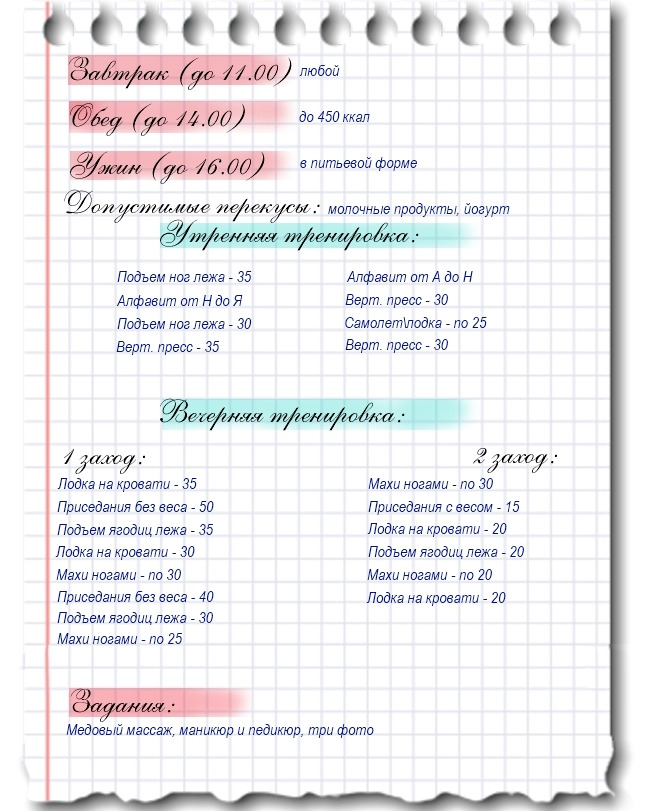 Завтрак (до 11.00) любой
Обед (до 14.00) до 450 ккал
Ужин (до 16.00) в питьевой форме
Допустимые перекусы: молочные продукты, йогурт
Утренняя тренировка:
Подъем ног лежа - 35
Алфавит от Н до Я
Подъем ног лежа - 30
Верт. пресс - 35
Алфавит от А до Н
Верт. пресс - 30
Самолет\лодка - по 25
Верт. пресс - 30
Вечерняя тренировка:
1 заход:
Лодка на кровати - 35
Приседания без веса - 50
Подъем ягодиц лежа - 35
Лодка на кровати - 30
Махи ногами - по 30
Приседания без веса - 40
Подъем ягодиц лежа - 30
Махи ногами - по 25
2 заход:
Махи ногами - по 30
Приседания с весом - 15
Лодка на кровати - 20
Подъем ягодиц лежа - 20
Махи ногами - по 20
Лодка на кровати - 20
Задания:
Медовый массаж, маникюр и педикюр, три фото